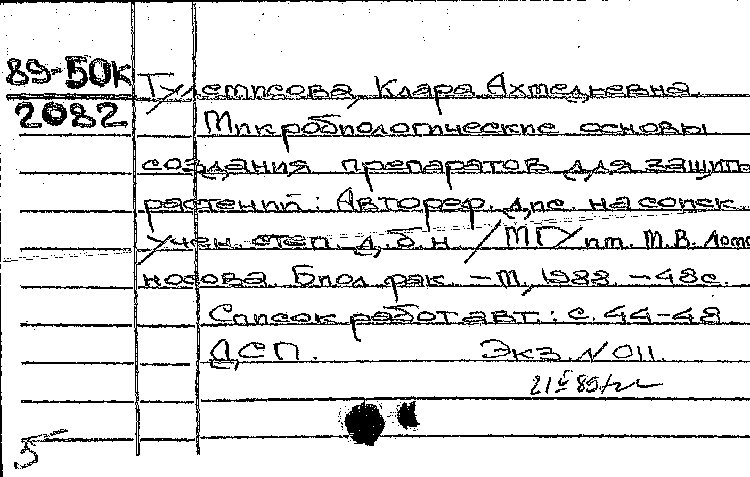 89-БОК
2082
Тулемисова, Клара Ахметжевна
Микробиологические основы
создания препаратов для защиты
растений: Автореф. дис. на соиск.
учен. степ. д.б.н. / МГУ им. М.В. Ломо-
носова. Биол. фак. - М., 1988. - 48с.
Список работ авт.: с. 44-48
ДСП. Экз. N 011.
5